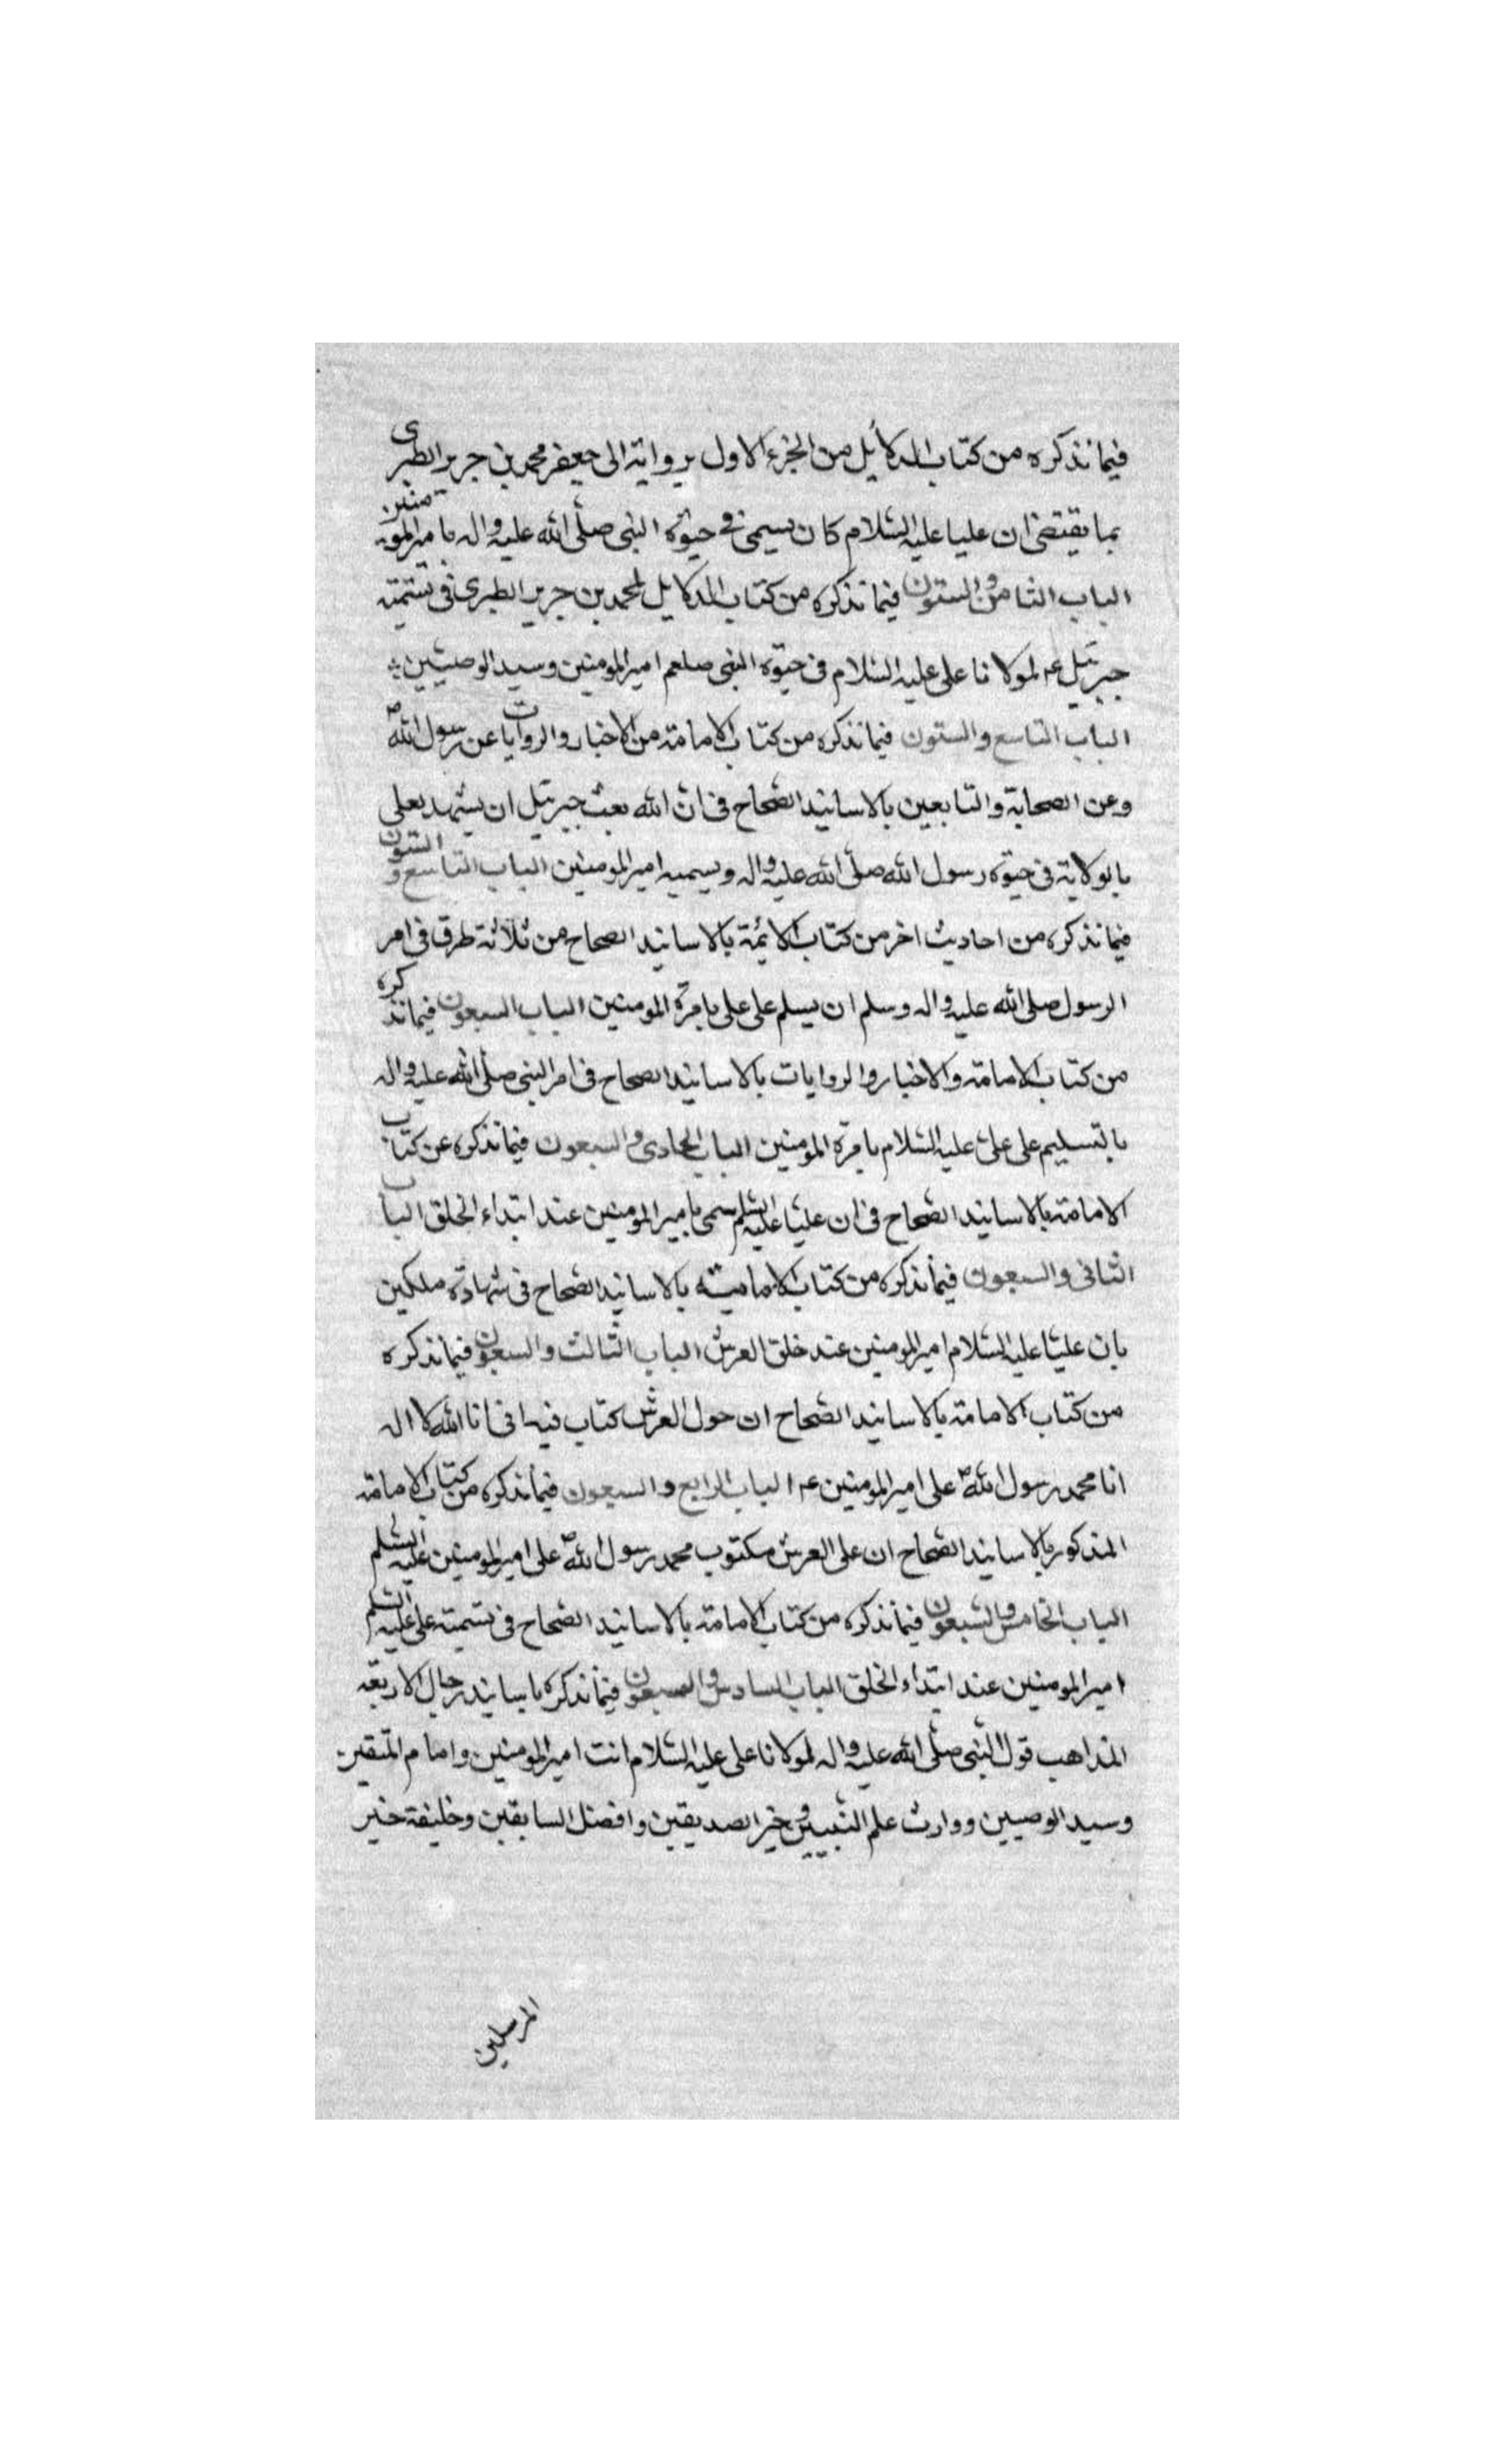 فيما نذكره من كتاب الدلايل من الجزء الاول برواية ابى جعفر محمد بن جرير الطبرى
بما يقتضى ان عليا عليه السلام كان يسمى فى حيوة النبى صلى الله عليه واله بامير المومنين
الباب الثامن والستون فيما نذكره من كتاب الدلايل لمحمد بن جرير الطبرى فى تسمية
جبرئيل عم لمولانا على عليه السلام فى حيوة النبى صلعم امير المومنين وسيد الوصيين
الباب التاسع والستون فيما نذكره من كتاب الامامة من الاخبار والروايات عن رسول الله ص
وعن الصحابة والتابعين بالاسانيد الصحاح فى ان الله بعث جبرئيل ان يشهد بعلى
بالولاية فى حيوة رسول الله صلى الله عليه واله ويسميه امير المومنين الباب التاسع والستون
فيما نذكره من احاديث اخر من كتاب الائمة بالاسانيد الصحاح من ثلاثة طرق فى امر
الرسول صلى الله عليه واله وسلم ان يسلم على على بامرة المومنين الباب السبعون فيما نذكره
من كتاب الامامة والاخبار والروايات بالاسانيد الصحاح فى امر النبى صلى الله عليه واله
بالتسليم على على عليه السلام بامرة المومنين الباب الحادى والسبعون فيما نذكره عن كتاب
الامامة بالاسانيد الصحاح فى ان عليا عليه السلم سمى بامير المومنين عند ابتداء الخلق الباب
الثانى والسبعون فيما نذكره من كتاب الاماميته بالاسانيد الصحاح فى شهادة ملكين
بان عليا عليه السلام امير المومنين عند خلق العرش الباب الثالث والسبعون فيما نذكره
من كتاب الامامة بالاسانيد الصحاح ان حول العرش كتاب فيه انى انا الله لا اله
انا محمد رسول الله ص على امير المومنين عم الباب الرابع والسبعون فيما نذكره من كتاب الامامة
المذكور بالاسانيد الصحاح ان على العرش مكتوب محمد رسول الله ص على امير المومنين عليه السلم
الباب الخامس والسبعون فيما نذكره من كتاب الامامة بالاسانيد الصحاح فى تسمية على عليه السلم
امير المومنين عند ابتداء الخلق الباب السادس والسبعون فيما نذكره باسانيد رجال الاربعه
المذاهب قول النبى صلى الله عليه واله لمولانا على عليه السلام انت امير المومنين وامام المتقين
وسيد الوصيين ووارث علم النبيين وخير الصديقين وافضل السابقين وخليفة خير
المرسلين